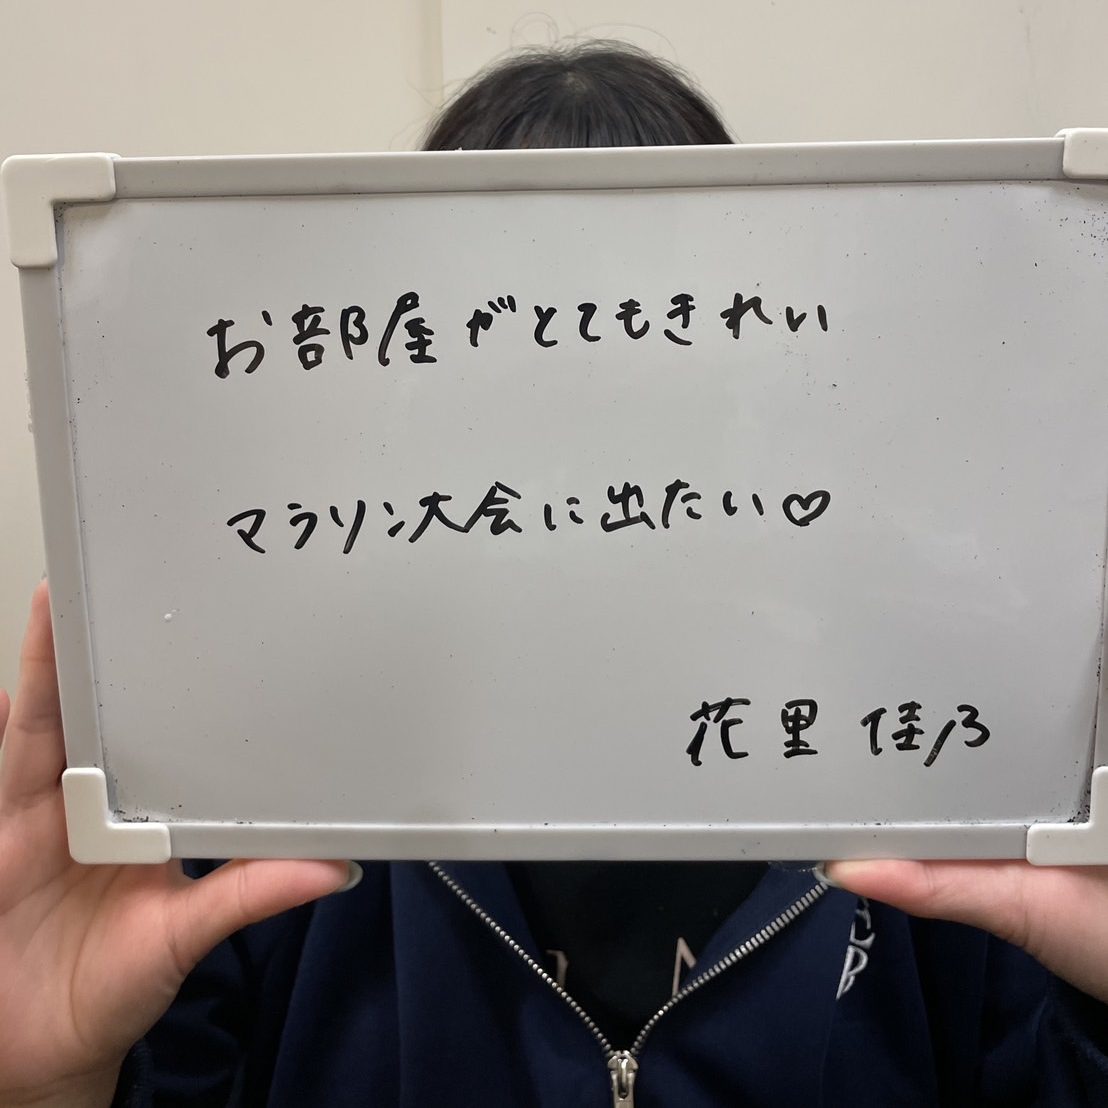 お部屋がとてもきれい
マラソン大会に出たい♡
花里 佳乃